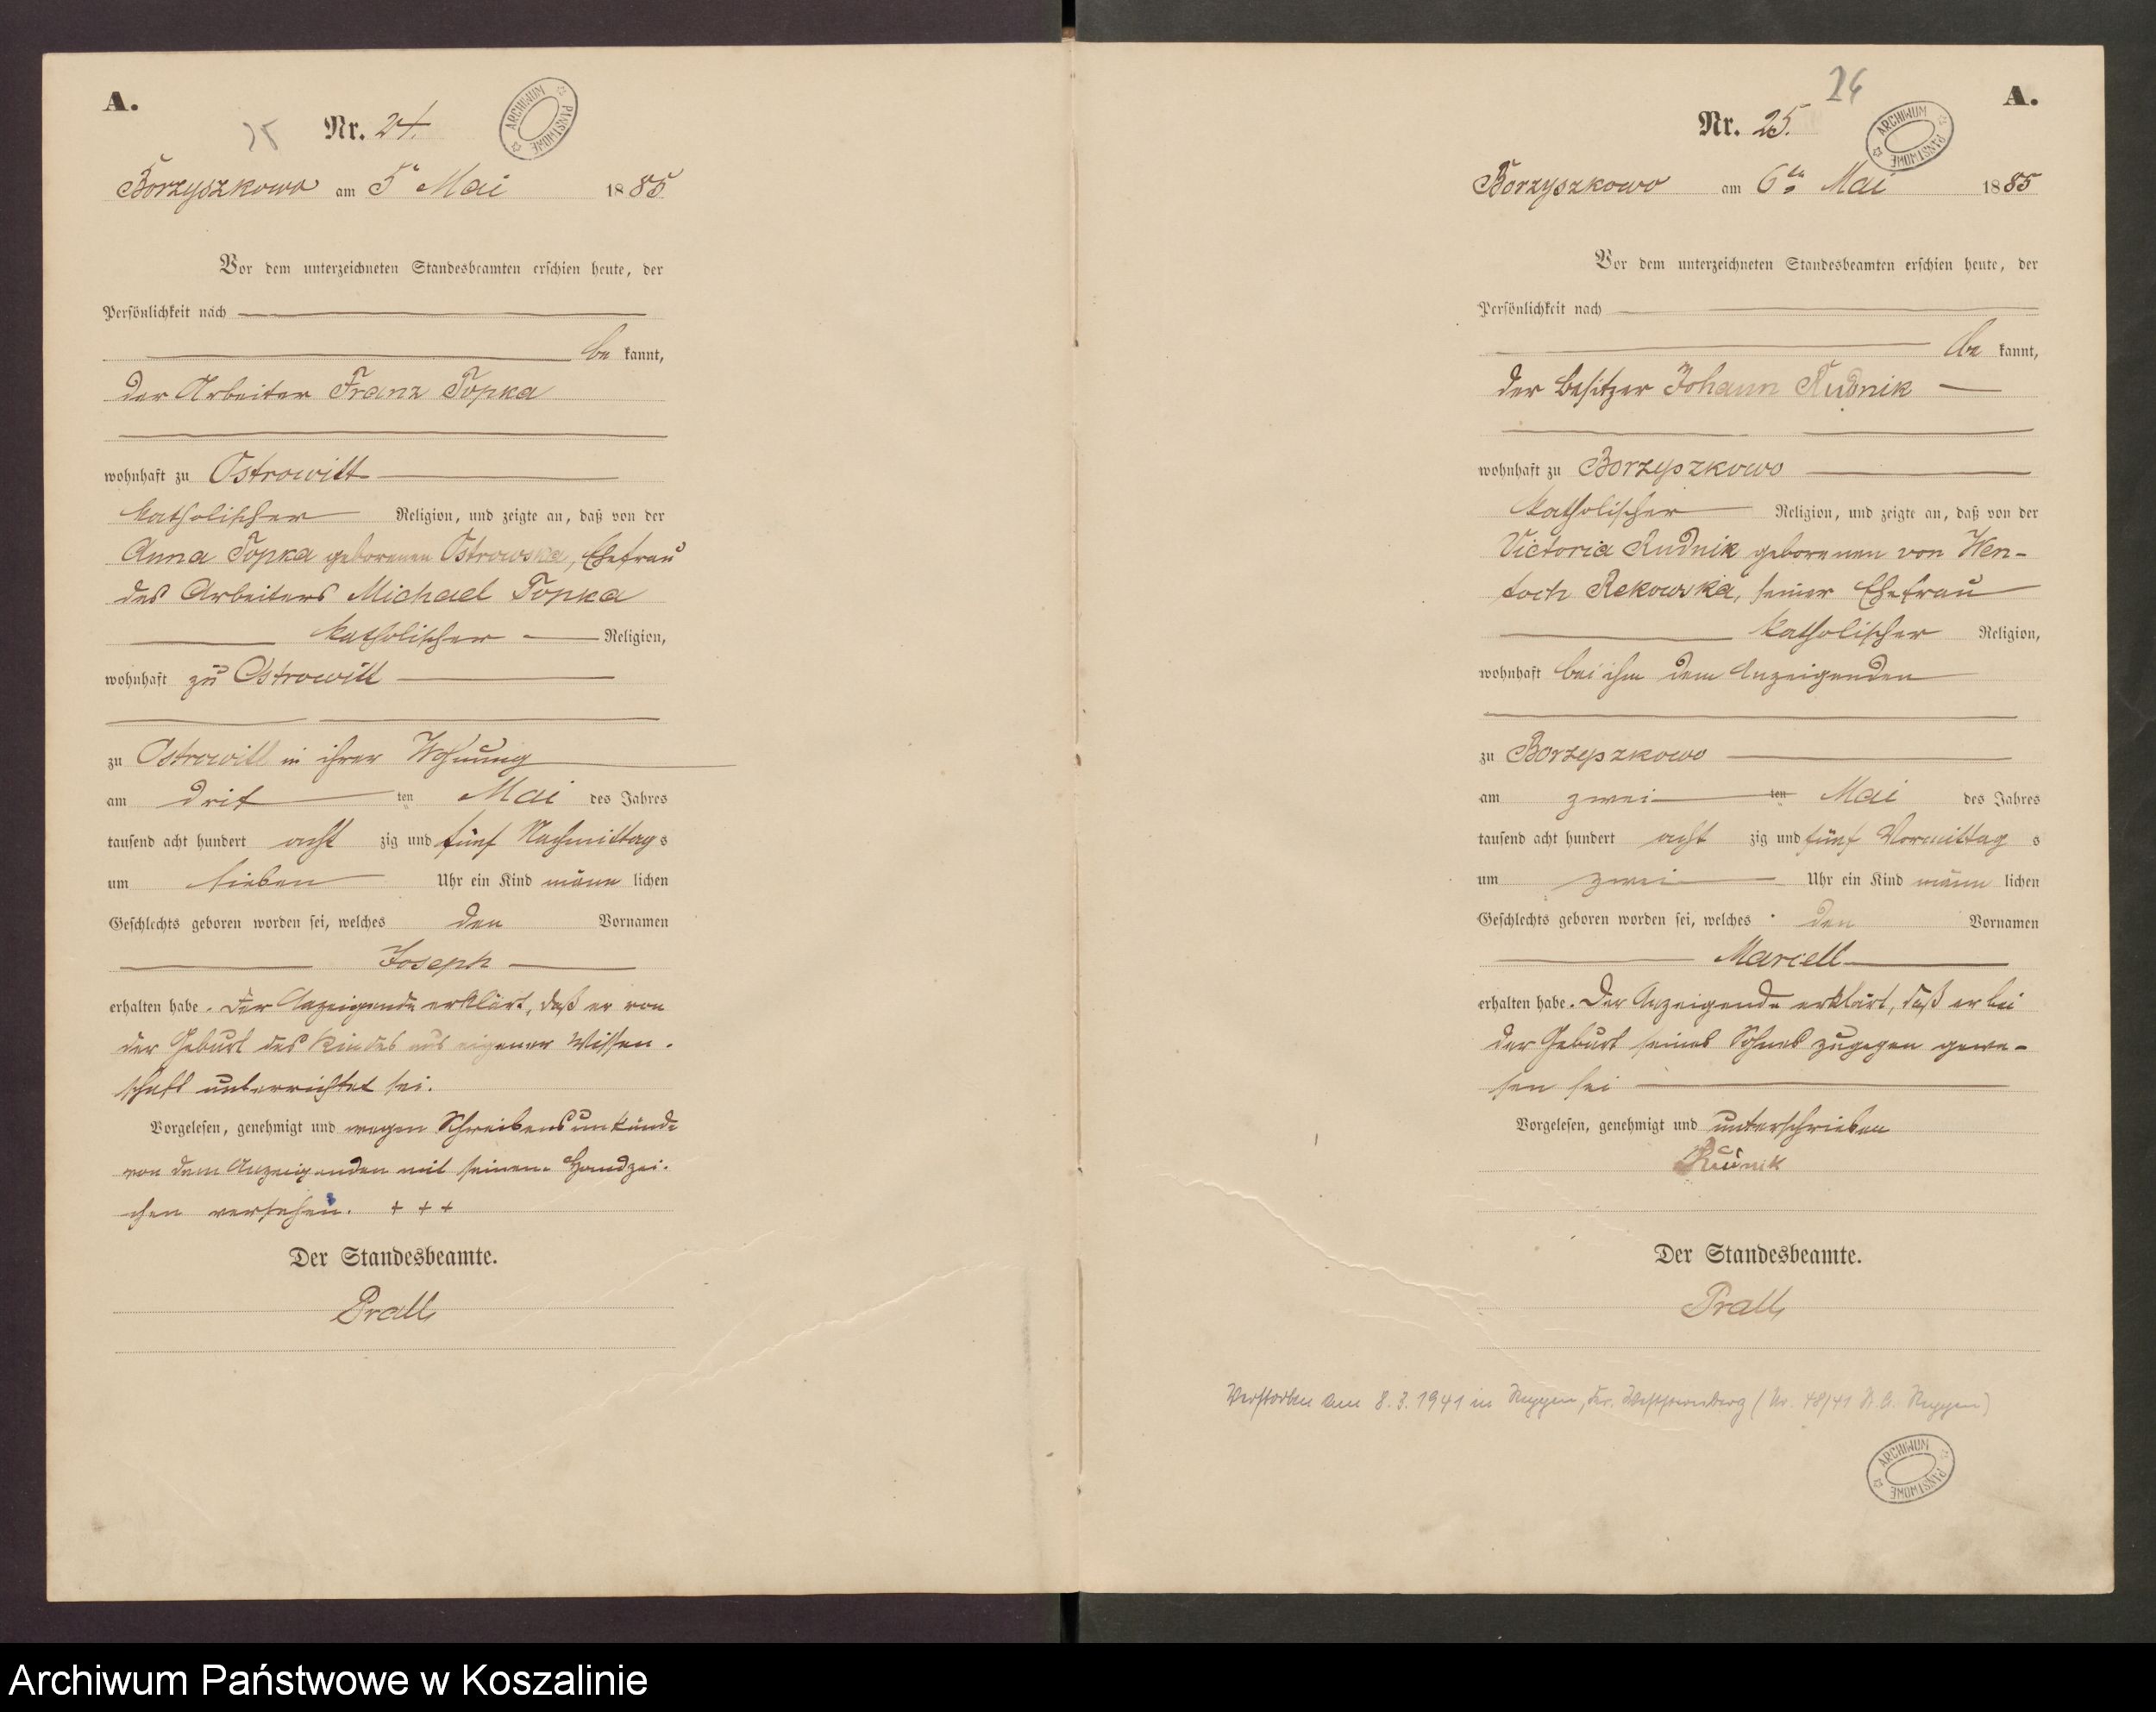 A.
25
Nr. 24.
ARCHIWUM PAŃSTWOWE
Borzyszkowo am 5n Mai 1885
Vor dem unterzeichneten Standesbeamten erschien heute, der
Persönlichkeit nach
be kannt,
der Arbeiter Franz Topka
wohnhaft zu Ostrowitt
katholischer Religion, und zeigte an, daß von der
Anna Topka geborenen Ostrowska, Ehefrau
des Arbeiters Michael Topka
katholischer Religion,
wohnhaft zu Ostrowitt
zu Ostrowitt in ihrer Wohnung
am drit ten Mai des Jahres
tausend acht hundert acht zig und fünf Nachmittag s
um sieben Uhr ein Kind männ lichen
Geschlechts geboren worden sei, welches den Vornamen
Joseph
erhalten habe. Der Anzeigende erklärt, daß er von
der Geburt des Kindes aus eigener Wissen-
schaft unterrichtet sei.
Vorgelesen, genehmigt und wegen Schreibensunkunde
von dem Anzeigenden mit seinem Handzei-
chen versehen. + + +
Der Standesbeamte.
Prall
26
A.
Nr. 25.
ARCHIWUM PAŃSTWOWE
Borzyszkowo am 6ten Mai 1885
Vor dem unterzeichneten Standesbeamten erschien heute, der
Persönlichkeit nach
be kannt,
der Besitzer Johann Rudnik
wohnhaft zu Borzyszkowo
katholischer Religion, und zeigte an, daß von der
Victoria Rudnik geborenen von Wen-
toch Rekowska, seiner Ehefrau
katholischer Religion,
wohnhaft bei ihm dem Anzeigenden
zu Borzyszkowo
am zwei ten Mai des Jahres
tausend acht hundert acht zig und fünf Vormittag s
um zwei Uhr ein Kind männ lichen
Geschlechts geboren worden sei, welches den Vornamen
Marcell
erhalten habe. Der Anzeigende erklärt, daß er bei
der Geburt seines Sohnes zugegen gewe-
sen sei
Vorgelesen, genehmigt und unterschrieben
Rudnik
Der Standesbeamte.
Prall
Verstorben am 8.3.1941 in Reppen, Kr. Weststernberg (Nr. 48/41 St.A. Reppen)
ARCHIWUM PAŃSTWOWE
Archiwum Państwowe w Koszalinie